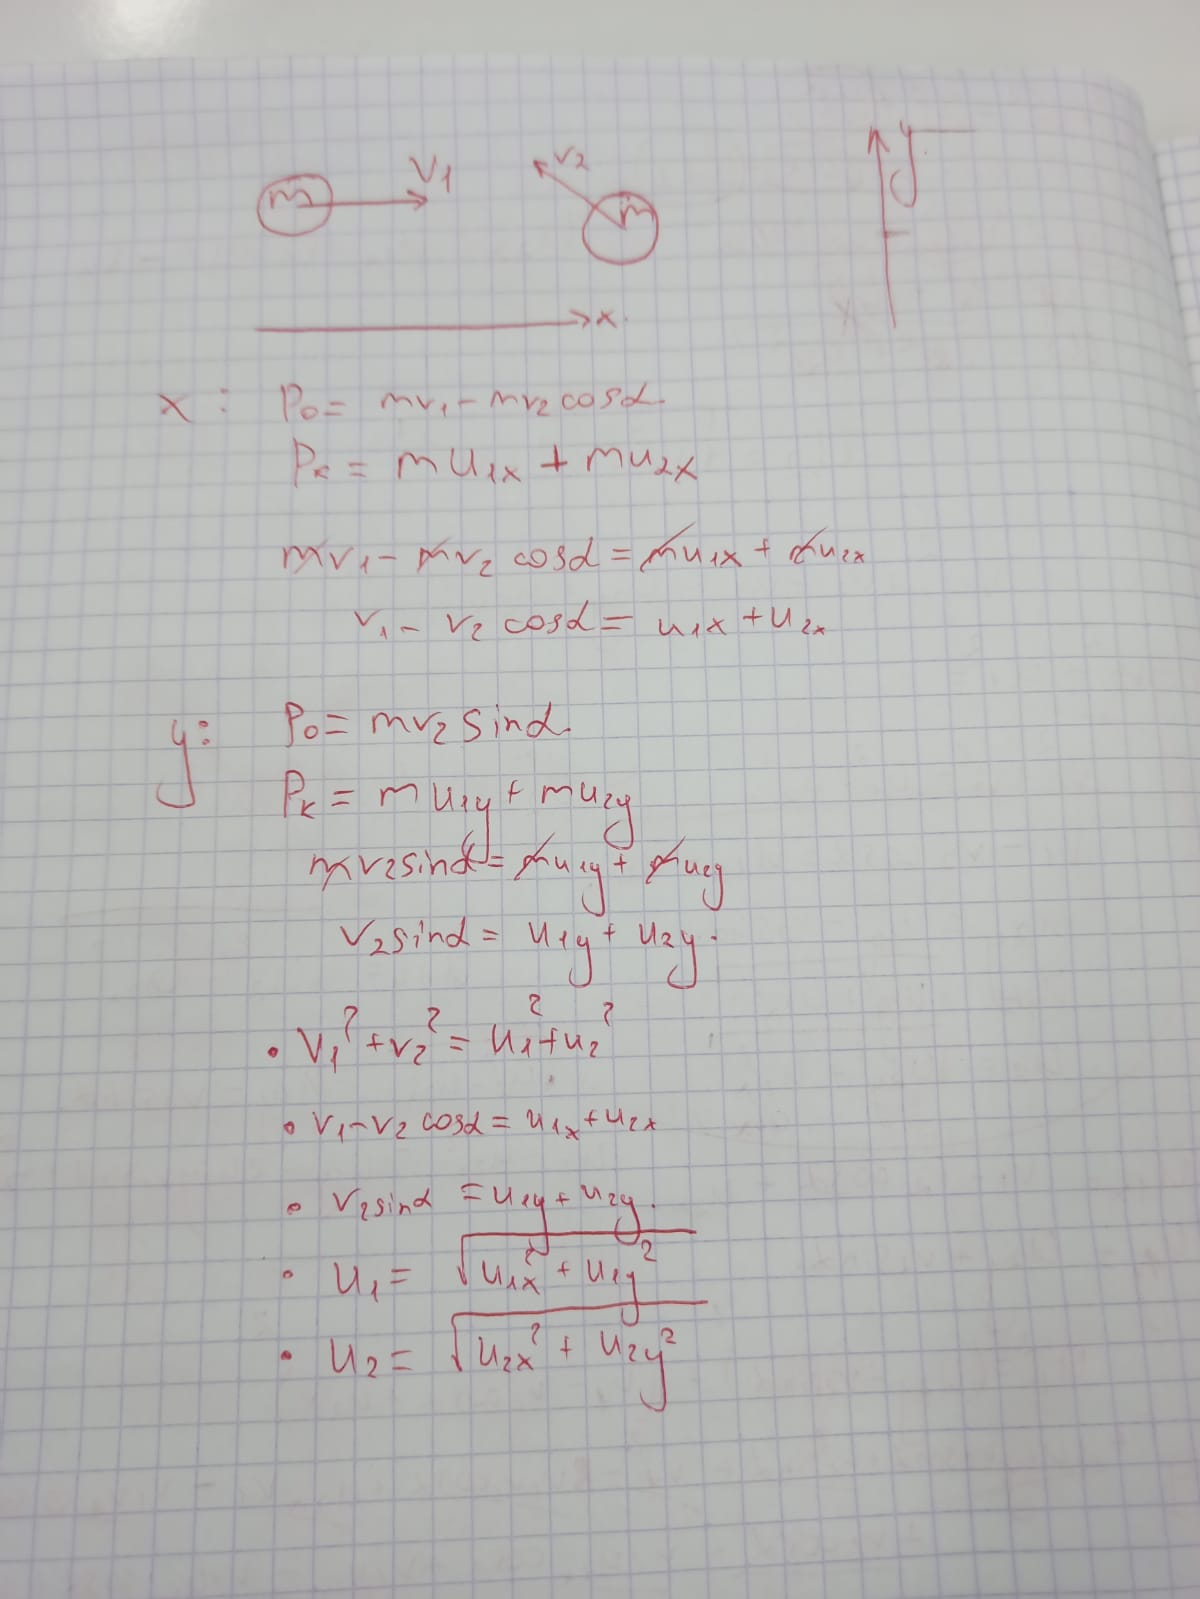 m V₁ V₂ m y
x
x: P₀ = mv₁ - mv₂ cosα.
Pₖ = mu₁ₓ + mu₂ₓ
mv₁ - mv₂ cosα = mu₁ₓ + mu₂ₓ
v₁ - v₂ cosα = u₁ₓ + u₂ₓ
y: P₀ = mv₂ sinα.
Pₖ = mu₁y + mu₂y
mv₂sinα = mu₁y + mu₂y
v₂sinα = u₁y + u₂y.
• V₁² + v₂² = u₁² + u₂²
• v₁ - v₂ cosα = u₁ₓ + u₂ₓ
• v₂sinα = u₁y + u₂y.
• u₁ = √(u₁ₓ² + u₁y²)
• u₂ = √(u₂ₓ² + u₂y²)